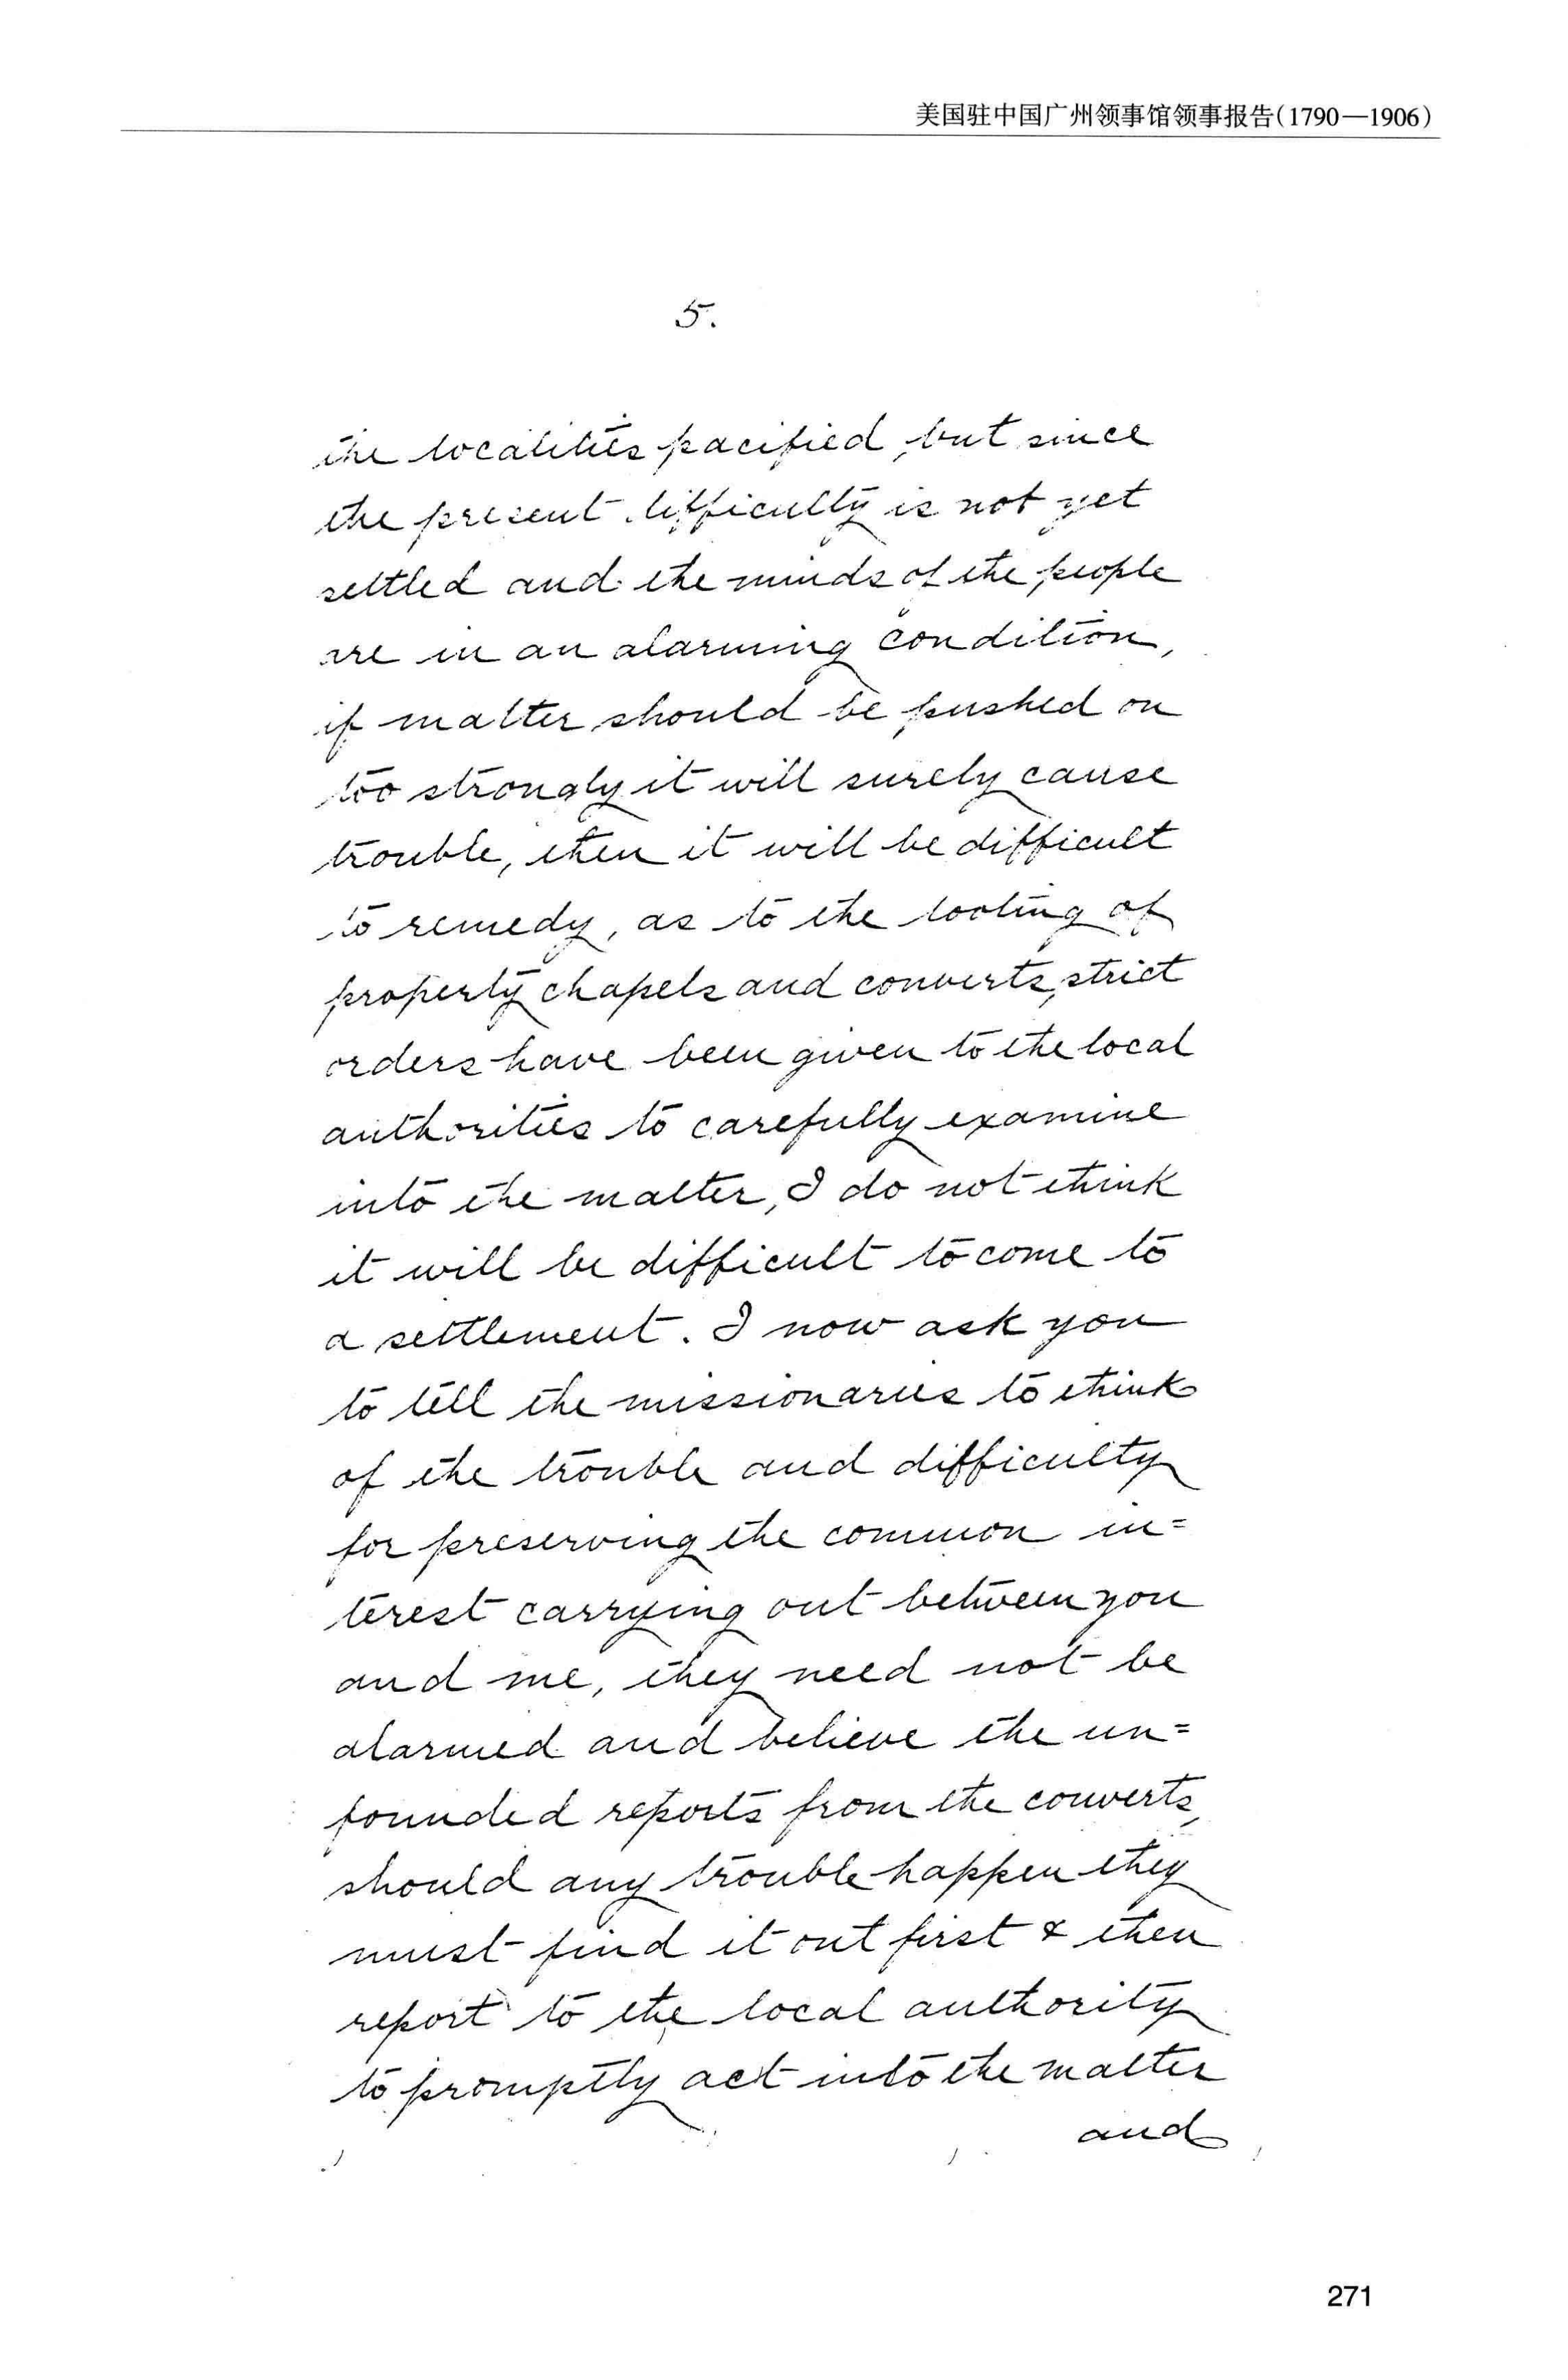 美国驻中国广州领事馆领事报告(1790—1906)
5.
the localities pacified, but since
the present difficulty is not yet
settled and the minds of the people
are in an alarming condition,
if matter should be pushed on
too strongly it will surely cause
trouble, then it will be difficult
to remedy, as to the looting of
property chapels and converts, strict
orders have been given to the local
authorities to carefully examine
into the matter, I do not think
it will be difficult to come to
a settlement. I now ask you
to tell the missionaries to think
of the trouble and difficulty
for preserving the common in=
terest carrying out between you
and me, they need not be
alarmed and believe the un=
founded reports from the converts,
should any trouble happen they
must find it out first & then
report to the local authority
to promptly act into the matter
and
271